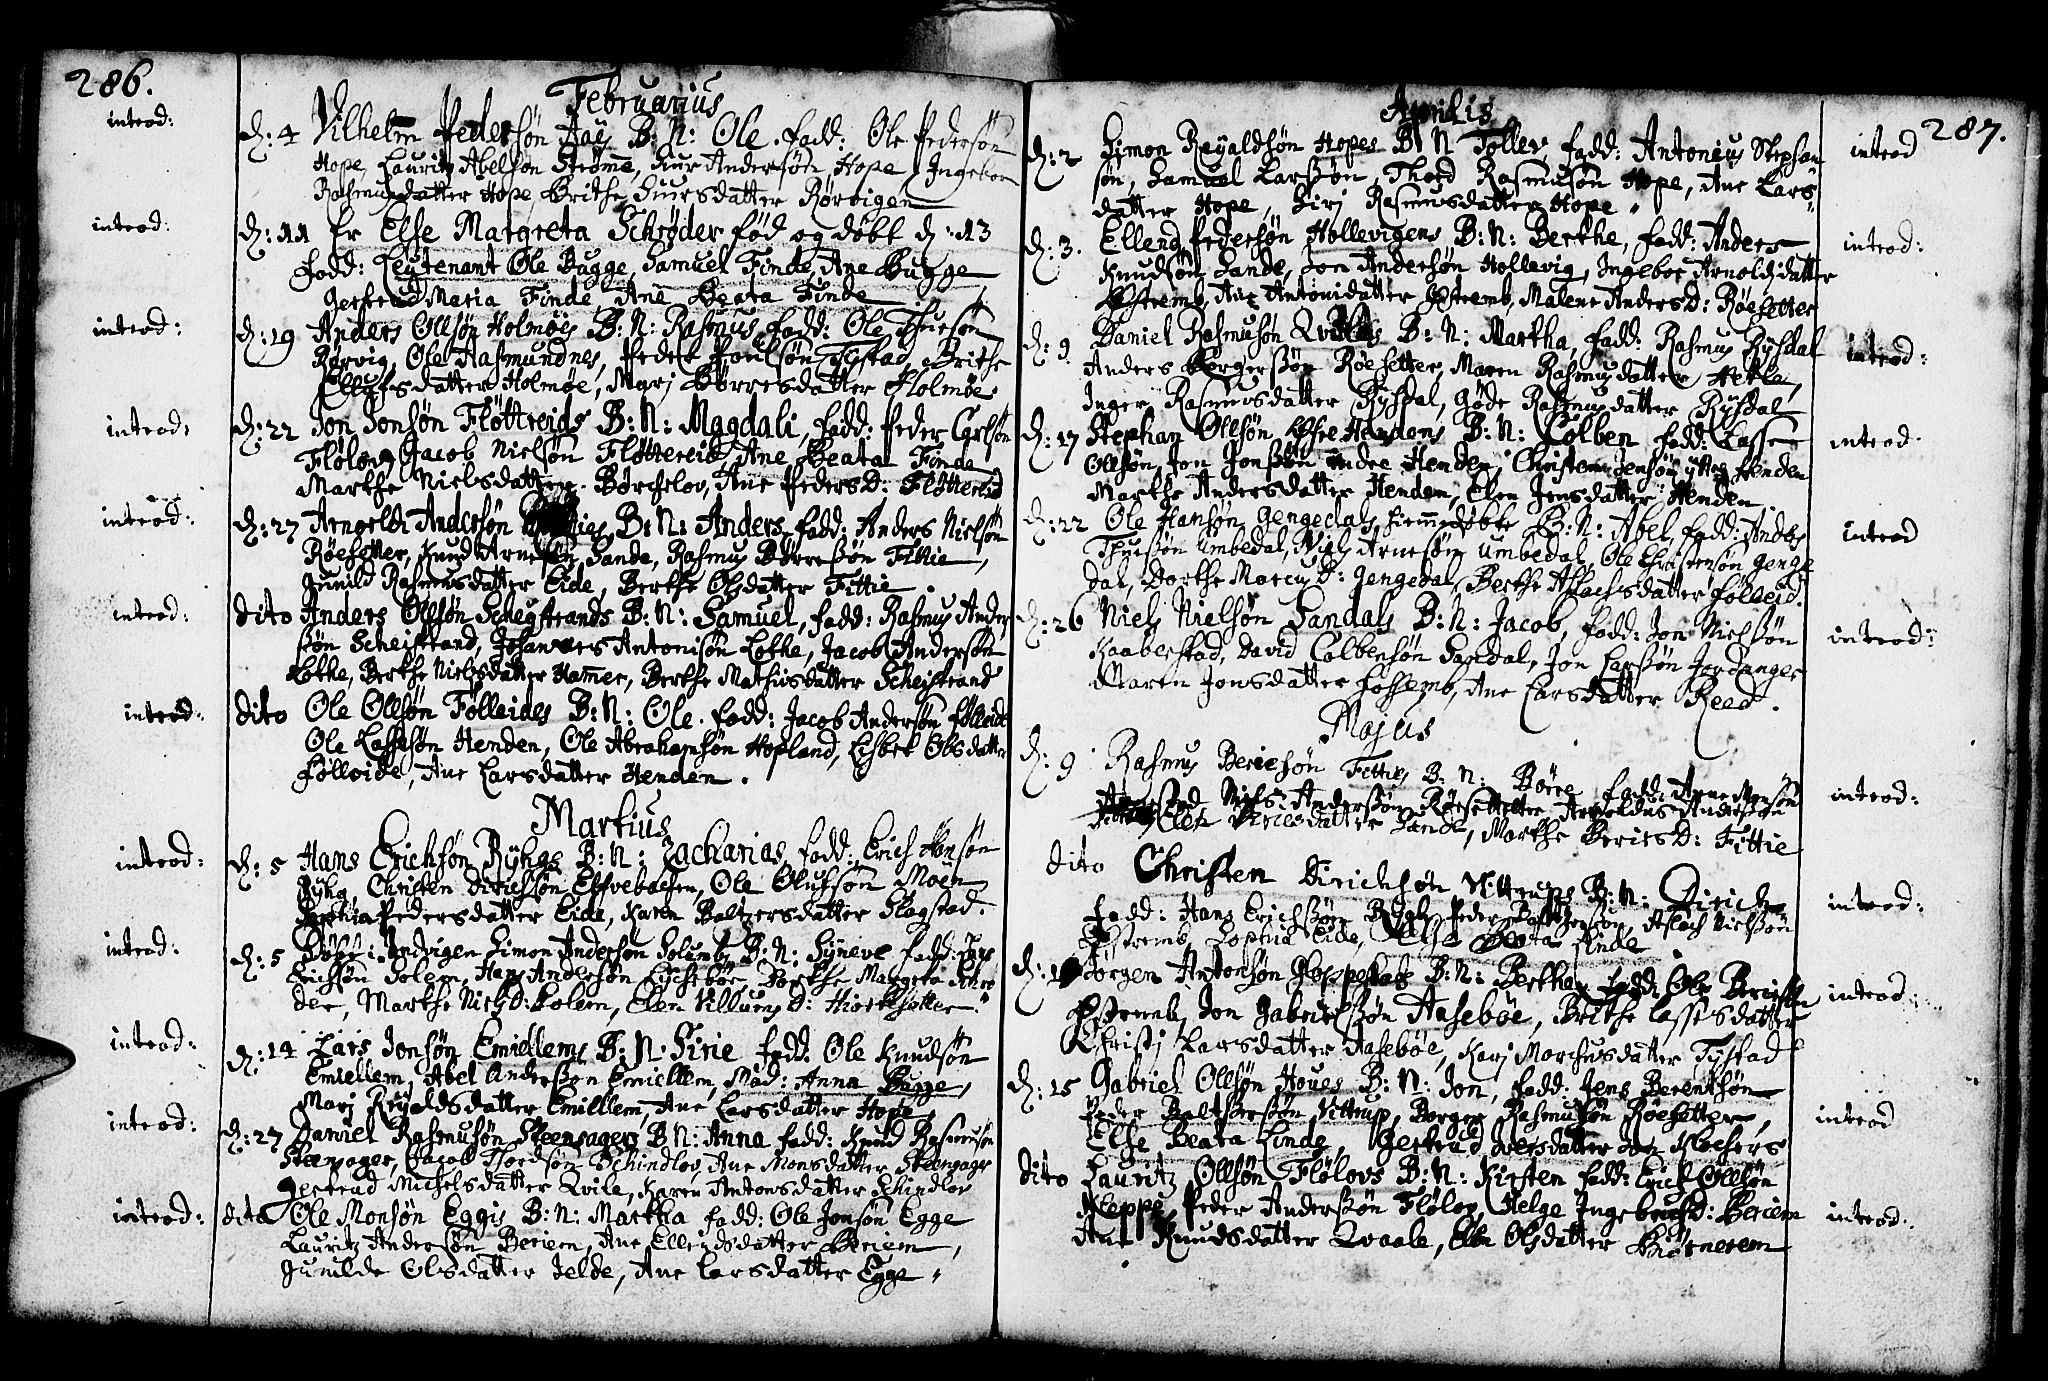 286.
Februarius
introd: d: 4 Vilhelm Pedersøn Aaes B: N: Ole. fadd: Ole Pedersøn
Hope, Lauritz Abelsøn Strøme, Siur Andersøn Hope, Ingebor
Rasmusdatter Hope, Brithe Siursdatter Rørvigen
introd: d: 11 Er Else Margreta Schrøder fød og døbt d: 13
Fadd: Leutenant Ole Bugge, Samuel Finde, Ane Bugge
Gertrud Maria Finde, Ane Beata Finde
introd: d: 19 Anders Ollsøn Holmøes B: N: Rasmus, fadd: Ole Thuesøn
Rørvig, Ole Aasmundnes, Peder Poulsøn Tystad, Brithe
Ellufsdatter Holmøe, Marj Børresdatter Holmøe.
introd: d: 22 Jon Jonsøn Fløttreids B: N: Magdali, fadd: Peder Carlsøn
Fløløv, Jacob Nielsøn Fløttereid, Ane Beata Finde
Marthe Nielsdatter, Ane Peders D: Fløttereid
introd: d: 27 Arnoldi Andersøn B: N: Anders, fadd: Anders Nielsøn
Røesetter, Knud Arnesøn Sande, Rasmus Børresøn Fittie,
Gunild Rasmusdatter Eide, Berthe Olsdatter Fittie.
introd: dito Anders Ollsøn Schejstrands B: N: Samuel, fadd: Rasmus Anders
søn Scheistrand, Johannes Antonisøn Lothe, Jacob Andersøn
Lothe, Berthe Nielsdatter Hamer, Berthe Mathisdatter Scheistrand
introd: dito Ole Ollsøn Fölleides B: N: Ole. fadd: Jacob Andersøn Følleide
Ole Lassesøn Henden, Ole Abrahamsøn Hopland, Lisbet Olsdatter
Følleide, Ane Larsdatter Henden.
Martius
introd: d: 5 Hans Erichsøn Ryhgs B: N: Zacharias, fadd: Erich Hansøn
Ryhg, Christen Dirichsøn, Ole Olufsøn Moen
Sophia Pedersdatter Eide, Karen Baltzersdatter Slagstad.
introd: d: 5 Døbt i Indvigen Simon Andersøn B: N: Syneve fadd:
Erichsøn Solem, Hans Andersøn, Dorthe Margreta Schrø
der, Marthe Niels D: Solem, Elen Villums D:
introd: d: 14 Lars Jonsøn Emiellems B: N: Sirie fadd: Ole Knudsøn
Emiellem, Abel Andersøn Emiellem, Mad: Anna Bugge,
Marj Reyaldsdatter Emillem, Ane Larsdatter Hope.
introd: d: 27 Daniel Rasmusøn Steensagers B: N: Anna fadd: Knud Rasmusøn
Steensager, Jacob Thordsøn Schindlov, Ane Monsdatter Steensager
Gertrud Michelsdatter Qvile, Karen Antonsdatter Schindlov
introd: dito Ole Monsøn Eggis B: N: Martha fadd: Ole Jonsøn Egge
Lauritz Andersøn Beriem, Ane Ellendsdatter Beriem,
Gunilde Olsdatter Jelde, Ane Larsdatter Egge.
287.
Aprilis
d: 2 Simon Reyaldsøn Hopes B: N Tollev, fadd: Antonius Stephan introd
søn, Samuel Larsøn, Thord Rasmusøn Hope, Ane Lars
datter Hope, Sirj Rasmusdatter Hope.
d: 3. Ellend Pedersøn Hollevigens B: N: Berthe, fadd: Anders introd:
Knudsøn Sande, Jon Andersøn Hollevig, Ingebor Arnoldsdatter
Østremb, Ane Antonidatter Østremb, Malene Anders D: Røesetter
d: 9 Daniel Rasmusøn Qviles B: N: Martha, fadd: Rasmus Rysdal introd:
Anders Børgesøn Røesetter, Maren Rasmusdatter Hetle,
Inger Rasmusdatter Rysdal, Gøde Rasmusdatter Rysdal
d: 17 Stephan Ollsøn Hendens B: N: Colben fadd: Lasse introd.
Ollsøn, Jon Jonsøn indre Henden, Christen Jensøn yttre Henden
Marthe Andersdatter Henden, Elen Jensdatter Henden.
d: 22 Ole Hansøn Gengedals hiemmedøbte B: N: Abel, fadd: Anders introd
Thuesøn Umbedal, Niels Arnesøn Umbedal, Ole Christensøn Genge
dal, Dorthe Marcus D: Gengedal, Berthe Aslachsdatter Følleid.
d: 26 Niels Nielsøn Sandals B: N: Jacob, fadd: Jon Nielsøn introd:
Kaaberstad, David Colbensøn Sandal, Jon Larsøn Jordanger
Maren Jonsdatter Fossemb, Ane Larsdatter Reed.
Majus
d: 9 Rasmus Beriesøn Fitties B: N: Børre fadd: Arne Monsøn introd:
Niels Andersøn Røesetter, Arnoldus Andersøn
Elen Dirichsdatter Sande, Marthe Beries D: Fittie
dito Christen Dirichsøn Vittrups B: N: Dirich introd:
fadd: Hans Erichsøn Rygh, Peder Baltzersøn, Aslach Nielsøn
Østremb, Sophia Eide, Else Beata Finde
d: Jørgen Antonsøn Gloppestads B: N: Berthe, fadd: Ole Beriesøn introd
Østremb, Jon Gabrielsøn Aasebøe, Brithe Lassesdatter
Christj Larsdatter Aasebøe, Karj Marchusdatter Tystad
d: 15 Gabriel Ollsøn Houes B: N: Jon, fadd: Jens Berentsøn
Peder Baltzersøn Vittrup, Børger Rasmusøn Røesetter, introd
Else Beata Finde, Gertrud Iversdatter
dito Lauritz Ollsøn Fløløvs B: N: Kirsten fadd: Erich Ollsøn
Heppe, Peder Andersøn Fløløv, Helge Ingebrets D: Beriem introd:
Ane Knudsdatter Qvaale, Elen Olsdatter Biørnerem